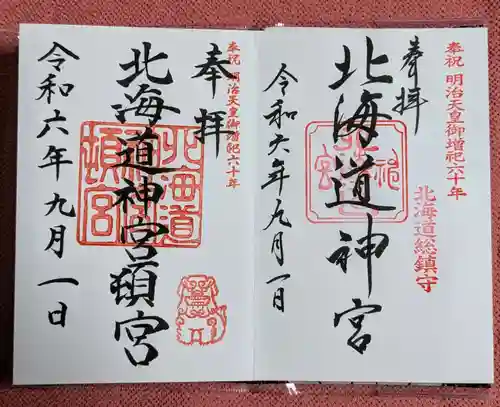 奉祝 明治天皇御増祀六十年
奉拝
北海道総鎮守
北海道神宮
令和六年九月一日
奉祝 明治天皇御増祀六十年
奉拝
北海道神宮頓宮
北海道
頓宮
令和六年九月一日